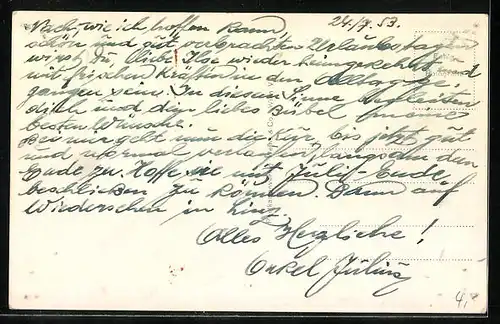 24./7. 53.
Nach, wie ich hoffen kann
schön und gut verbrachten Urlaubstagen
wirst du, liebe Ilse wieder heimgekehrt und
mit frischen Kräften in den Alltag ge-
gangen sein. In diesem Sinne begleiten
dich und dein liebes meine
besten Wünsche.
Bei mir geht nun die Kur, bis jetzt gut
und normal verlaufen, langsam dem
Ende zu. Hoffe sie mit Juli-Ende
beschließen zu können. Dann auf
Wiedersehen in Linz.
Alles Herzliche!
Onkel Julius
4,-